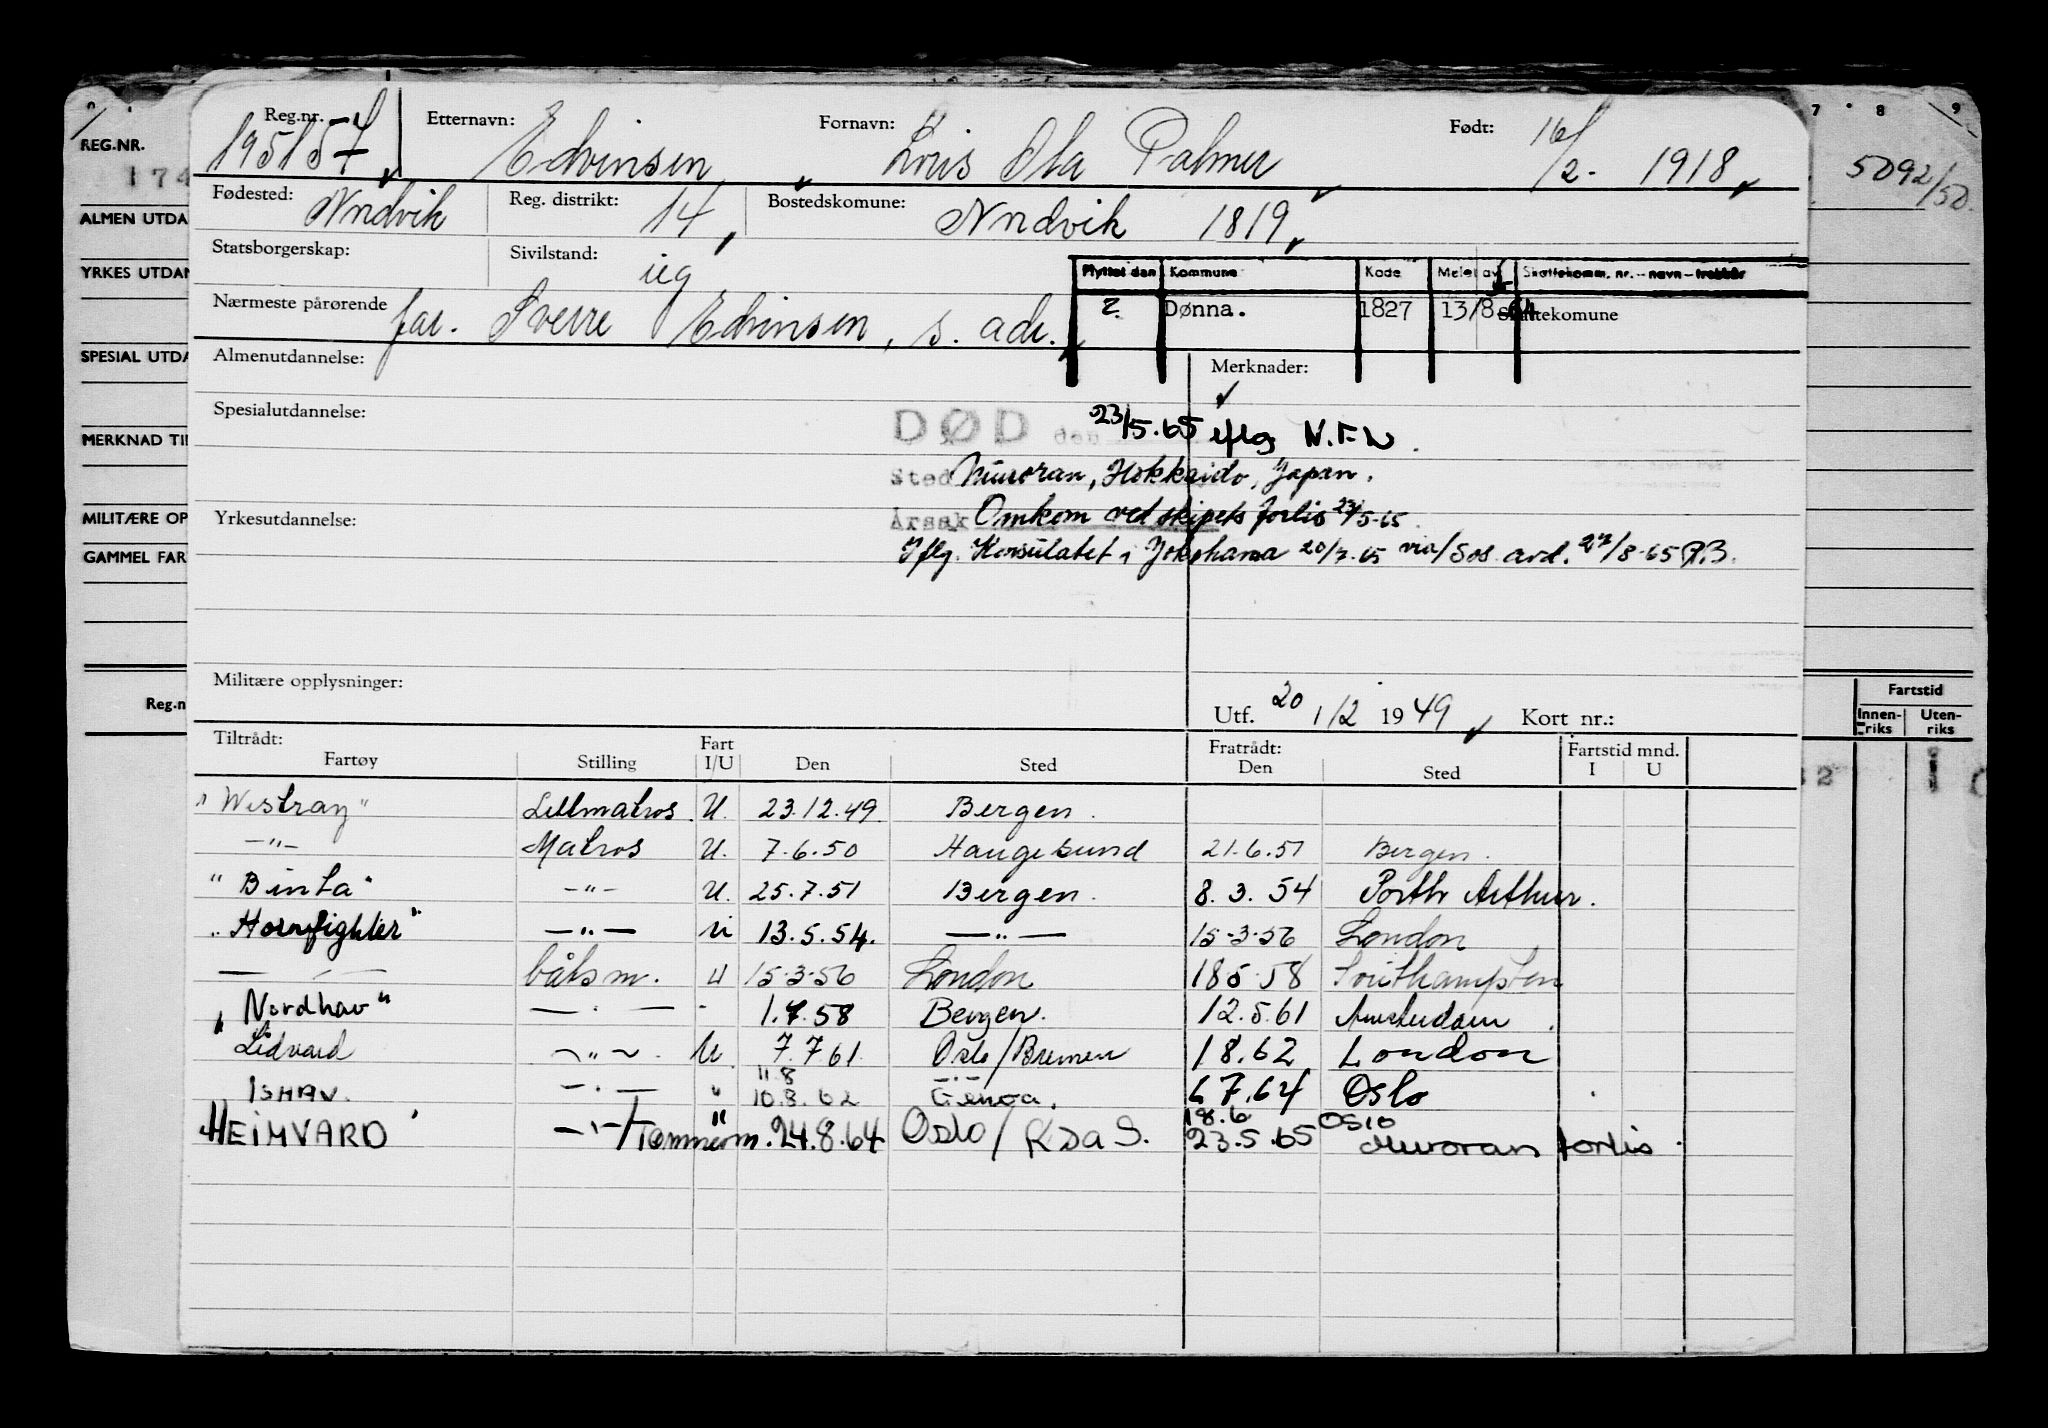 7 8 9
REG.NR.
174
ALMEN UTDA
YRKES UTDAN
SPESIAL UTDA
MERKNAD TI
MILITÆRE OP
GAMMEL FAR
Reg.n
5092/50
Fartstid
Innen-riks Uten-riks
Reg.nr. 195157 Etternavn: Edvinsen, Fornavn: Loris Ola Palmer Født: 16/2. 1918
Fødested: Nordvik Reg. distrikt: 14 Bostedskomune: Nordvik 1819
Statsborgerskap: Sivilstand: ug
Flyttet den Kommune Kode Meld av Skattekomm. nr. - navn - trekkår
Nærmeste pårørende far. Sverre Edvinsen, s. adr. 2 Dønna. 1827 13/8 64 Skattekomune
Almenutdannelse: Merknader:
Spesialutdannelse: DØD den 23/5.65 iflg N.F.D.
Sted Muroran, Hokkaido, Japan.
Yrkesutdannelse: Årsak Omkom ved skipets forlis 23/5-65
Iflg. Konsulatet i Yokohama 20/7.65 via/Sos. avd. 27/8-65 R.B.
Militære opplysninger:
Utf. 20/12 1949 Kort nr.:
Tiltrådt: Fratrådt: Fartstid mnd.
Fartøy Stilling Fart I/U Den Sted Den Sted I U
"Westray" Lettmatros U. 23.12.49 Bergen.
—"— Matros U. 7.6.50 Haugesund 21.6.51 Bergen.
"Binta" —"— U. 25.7.51 Bergen. 8.3.54 Porth Arthur.
"Hornfighter" —"— U 13.5.54. —"— 15-3-56 London
— — båtsm. U 15-3-56 London 18 5-58 Southampton
"Nordhav" —"— - 1.7.58 Bergen. 12.5.61 Amsterdam.
Lidvard —"—. U. 7.7.61 Oslo/Bremen 1 8.62 London
11.8 —"—
ISHAV. —"— " 10.8.62 Genoa. 6 7.64 Oslo
18.6 OSLO
HEIMVARD —"— Tømmerm. " 24.8.64 Oslo/KSaS. 23.5.65 Muroran forlis.